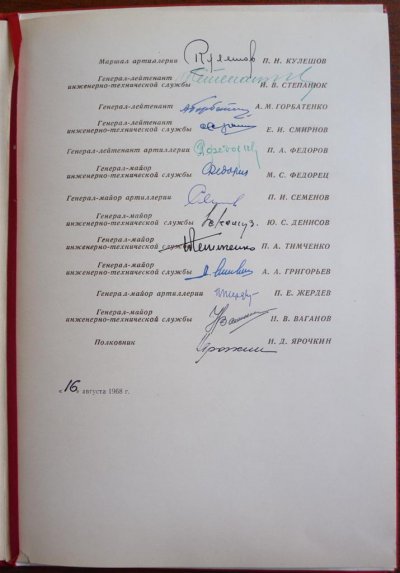 Маршал артиллерии Кулешов П. Н. КУЛЕШОВ
Генерал-лейтенант
инженерно-технической службы И. В. СТЕПАНЮК
Генерал-лейтенант А. М. ГОРБАТЕНКО
Генерал-лейтенант
инженерно-технической службы Е. И. СМИРНОВ
Генерал-лейтенант артиллерии П. А. ФЕДОРОВ
Генерал-майор
инженерно-технической службы М. С. ФЕДОРЕЦ
Генерал-майор артиллерии П. И. СЕМЕНОВ
Генерал-майор
инженерно-технической службы Ю. С. ДЕНИСОВ
Генерал-майор
инженерно-технической службы П. А. ТИМЧЕНКО
Генерал-майор
инженерно-технической службы А. А. ГРИГОРЬЕВ
Генерал-майор артиллерии П. Е. ЖЕРДЕВ
Генерал-майор
инженерно-технической службы П. В. ВАГАНОВ
Полковник И. Д. ЯРОЧКИН
«16» августа 1968 г.